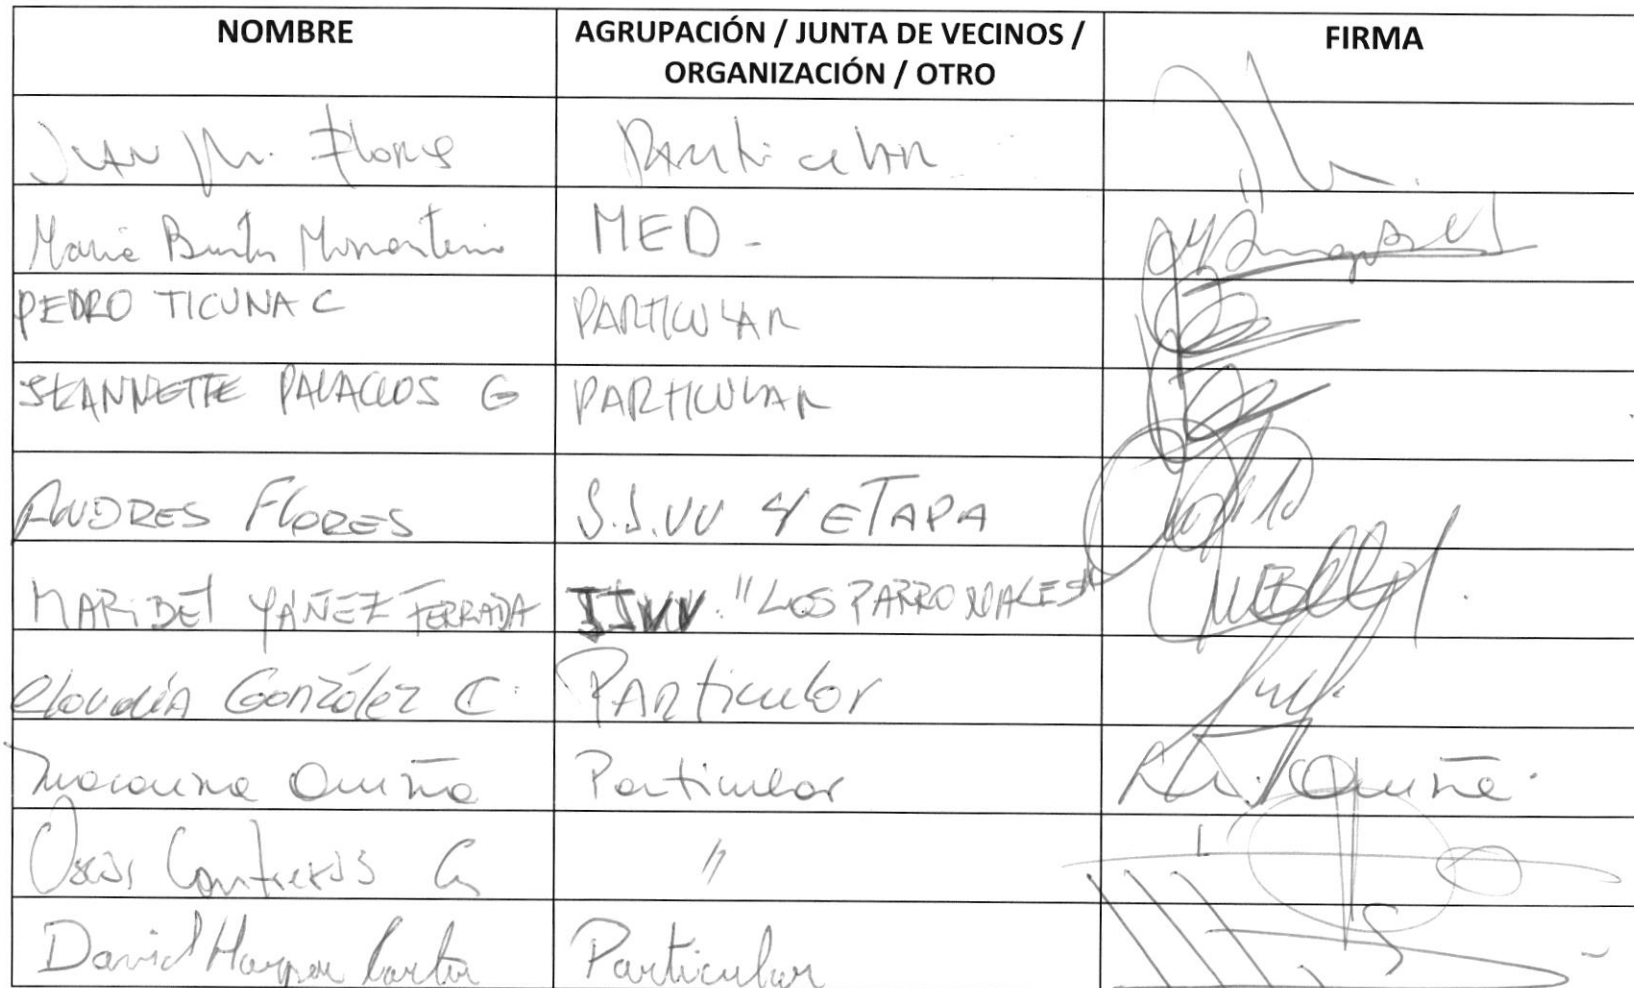 NOMBRE
AGRUPACIÓN / JUNTA DE VECINOS /
ORGANIZACIÓN / OTRO
FIRMA
JUAN M. Flores Particular
Maria MED-
PEDRO TICUNA C PARTICULAR
JEANNETTE PALACIOS G PARTICULAR
ANDRES FLORES J.J.VV 4 ETAPA
MARIBEL YAÑEZ FERRADA JJVV. "LOS PARRONALES"
Claudia González C. PARticular
Macarena Particular
Oscar Contreras G "
David Harper Particular